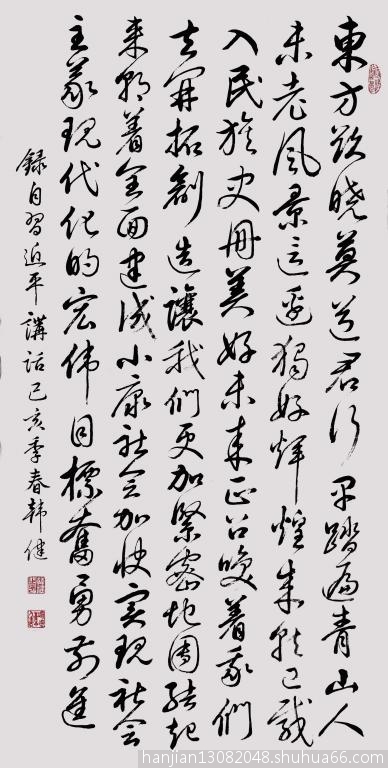 東方欲曉莫道君行早踏遍青山人
未老風景這邊獨好輝煌成就已載
入民族史冊美好未来正召喚着我們
去開拓創造讓我們更加緊密地團結起
来朝着全面建成小康社会加快实現社会
主義現代化的宏伟目標奮勇前進
録自習近平講話己亥季春韩健
hanjian13082048.shuhua66.com